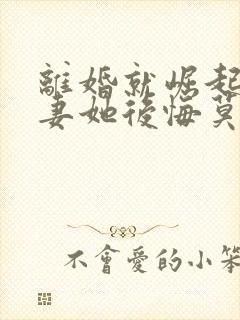 離婚就崛起
妻她後悔莫
不會愛的小笨